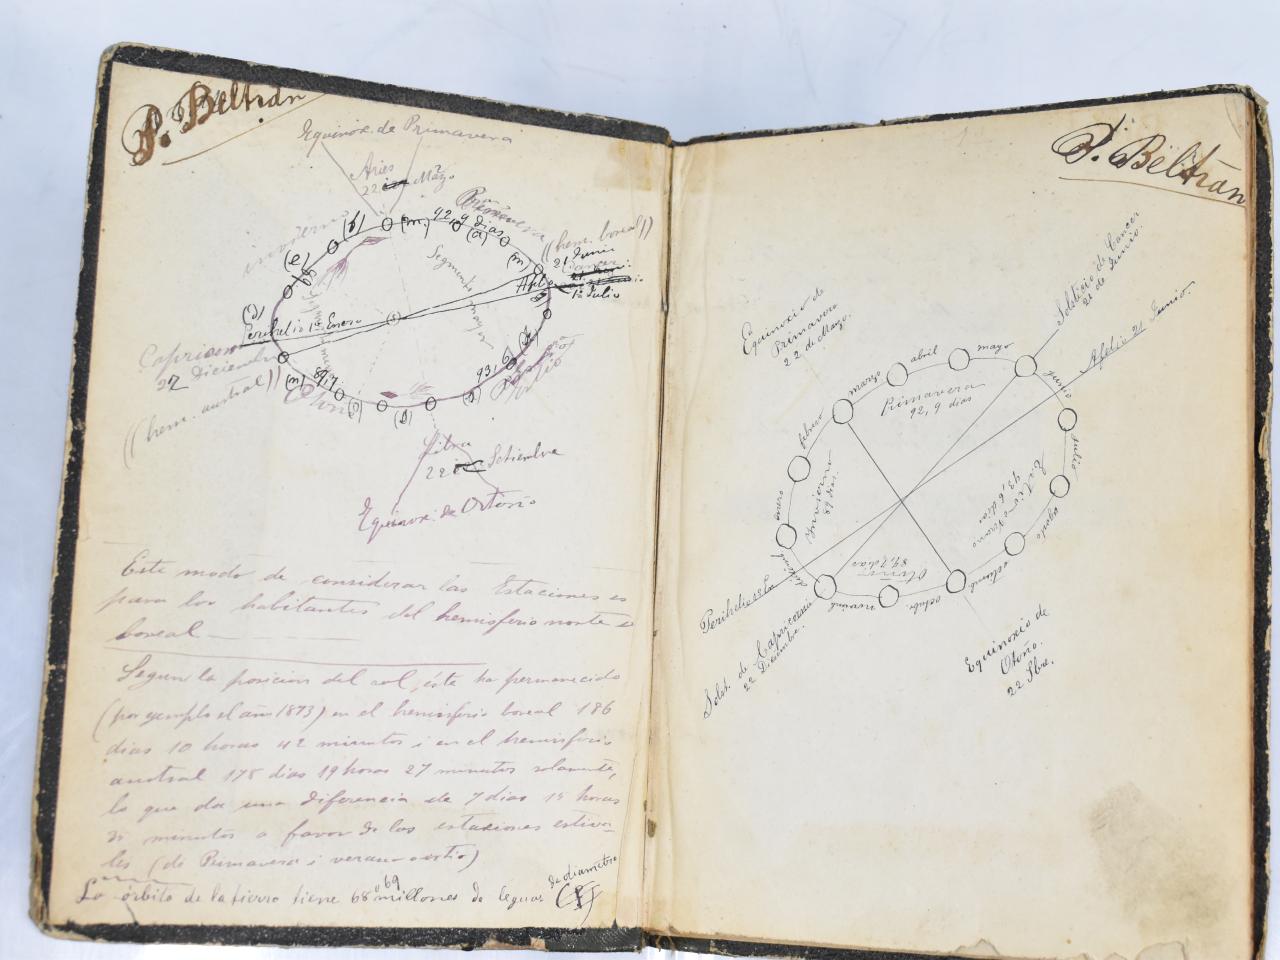 P. Beltrán
Equinox. de Primavera
Aries
22 de Marzo
invierno
Primavera
92,9 dias
(f)
(m)
(a)
(m)
(e)
((hem. boreal))
21 Junio
Cancer
1º Julio
Segmento mayor
Perihelio 1º Enero
Capricornio
22 Diciembre
((hem. austral))
(n)
89,7
Otoño
(o)
(s)
93,6
Libra
22 de Setiembre
Equinox. de Ortoño
Este modo de considerar las Estaciones es
para los habitantes del hemisferio norte o
boreal
Segun la posicion del sol, éste ha permanecido
(por ejemplo el año 1873) en el hemisferio boreal 186
dias 10 horas 42 minutos i en el hemisferio
austral 178 dias 19 horas 27 minutos solamente,
lo que da una diferencia de 7 dias 15 horas
minutos a favor de las estaciones estiva-
les (de Primavera i verano o estio)
La órbita de la tierra tiene 68 o 69 millones de leguas de diametro
P. Beltrán
Solsticio de Cancer
21 de Junio.
Equinoxio de
Primavera
22 de Marzo.
Afelio 21 Junio.
abril
mayo
marzo
junio
Primavera
92,9 dias
febrero
julio
Invierno
89 dias
Estio o Verano
93,6 dias
enero
agosto
Otoño
89,7 dias
setiemb
diciemb
noviemb
octubr.
Perihelio
Solst. de Capricornio
22 Diciembre.
Equinoxio de
Otoño.
22 Sbre.